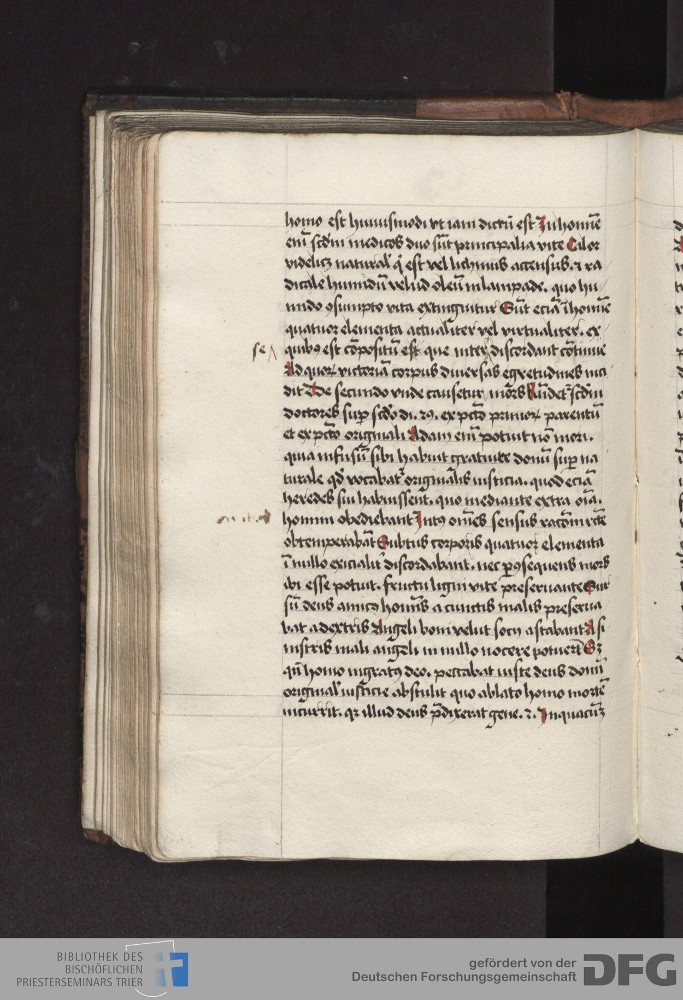 homo est huiusmodi vt iam dictū est In homīe
enī scdm medicos duo sūt principalia vite Calor
videlicꝫ natural' q̇ est vel lichinus accensus. ⁊ ra
dicale humidū velud oleū in lampade. quo hu
mido ꝯsumpto vita extinguitur Sūt eciā ī homīe
quatuor elementa actualiter vel virtualiter. ex
se quibꝰ est cōpositū est que inter discordant cōtinue
Ad quoꝝ victoriā corpus diuersas egretudines inci
dit De secundo vnde causetur mors scdm
doctores sup scdo di. ex pctō primoꝝ parentū
et ex pctō originali Adam enī potuit nō mori.
quia infusū sibi habuit gratuite donū sup na
turale qd vocabatr originalis iusticia. quod eciā
heredes sui habuissent. quo mediante extra oīa.
homini obediebant Intꝰ omēs sensus racōni
obtemperabāt Subtus corporis quatuor elementa
ī nullo exicialitr discordabant. nec ꝑ ꝯsequens mors
ibi esse potuit. fructu ligni vite preseruante Sur
sū deus amicꝰ hominis a cunctis malis preserua
bat a dextris Angeli boni velut socij astabant A si
nistris mali angeli in nullo nocere potuerūt Sꝫ
qn̄ homo ingratꝰ deo. peccabat iuste deus donū
original' iusticie abstulit quo ablato homo mortē
incurrit. qr illud deus p̄dixerat gene. ⁊. In quacūqꝫ
BIBLIOTHEK DES
BISCHÖFLICHEN
PRIESTERSEMINARS TRIER
gefördert von der
Deutschen Forschungsgemeinschaft
DFG